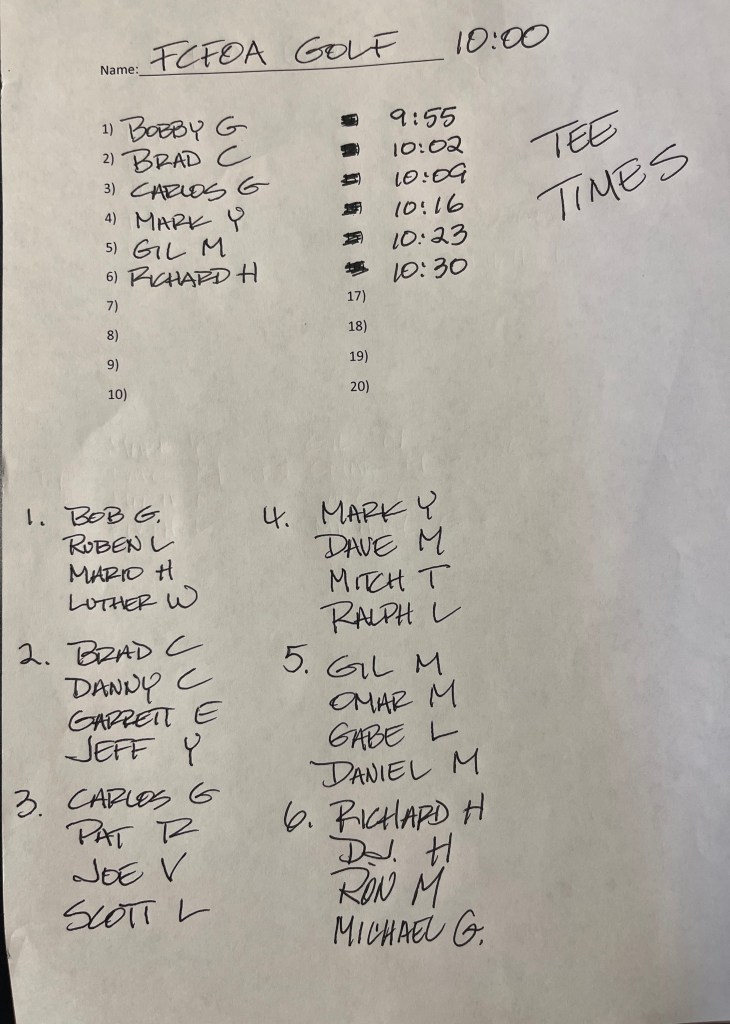 Name: FCFOA GOLF 10:00
1) BOBBY G 9:55
2) BRAD C 10:02
3) CARLOS G 10:09
4) MARK Y 10:16
5) GIL M 10:23
6) RICHARD H 10:30
TEE
TIMES
7) 17)
8) 18)
9) 19)
10) 20)
1. BOB G.
RUBEN L
MARIO H
LUTHER W
2. BRAD C
DANNY C
GARRETT E
JEFF Y
3. CARLOS G
PAT R
JOE V
SCOTT L
4. MARK Y
DAVE M
MITCH T
RALPH L
5. GIL M
OMAR M
GABE L
DANIEL M
6. RICHARD H
D.J. H
RON M
MICHAEL G.